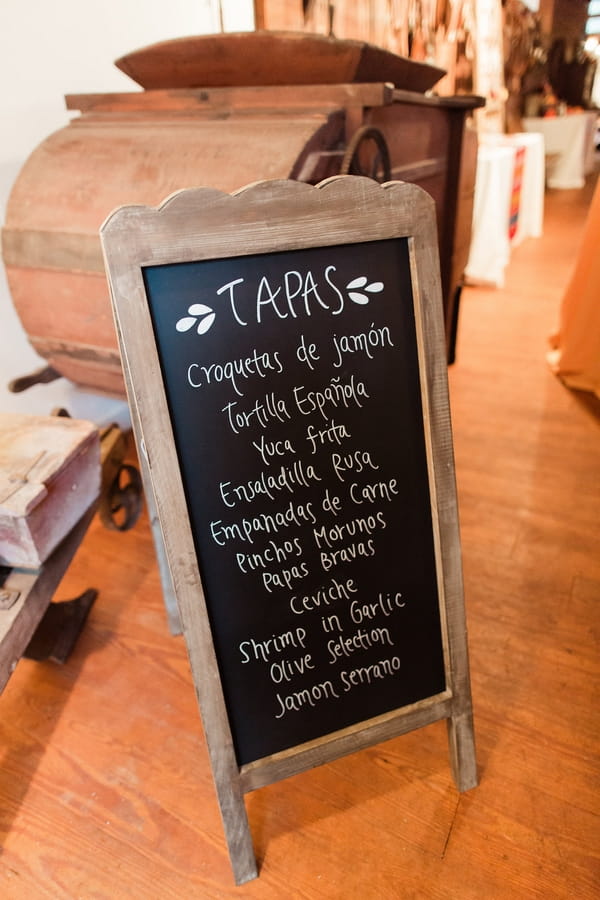 TAPAS
Croquetas de jamón
Tortilla Española
Yuca frita
Ensaladilla Rusa
Empanadas de Carne
Pinchos Morunos
Papas Bravas
Ceviche
Shrimp in Garlic
Olive Selection
Jamon Serrano